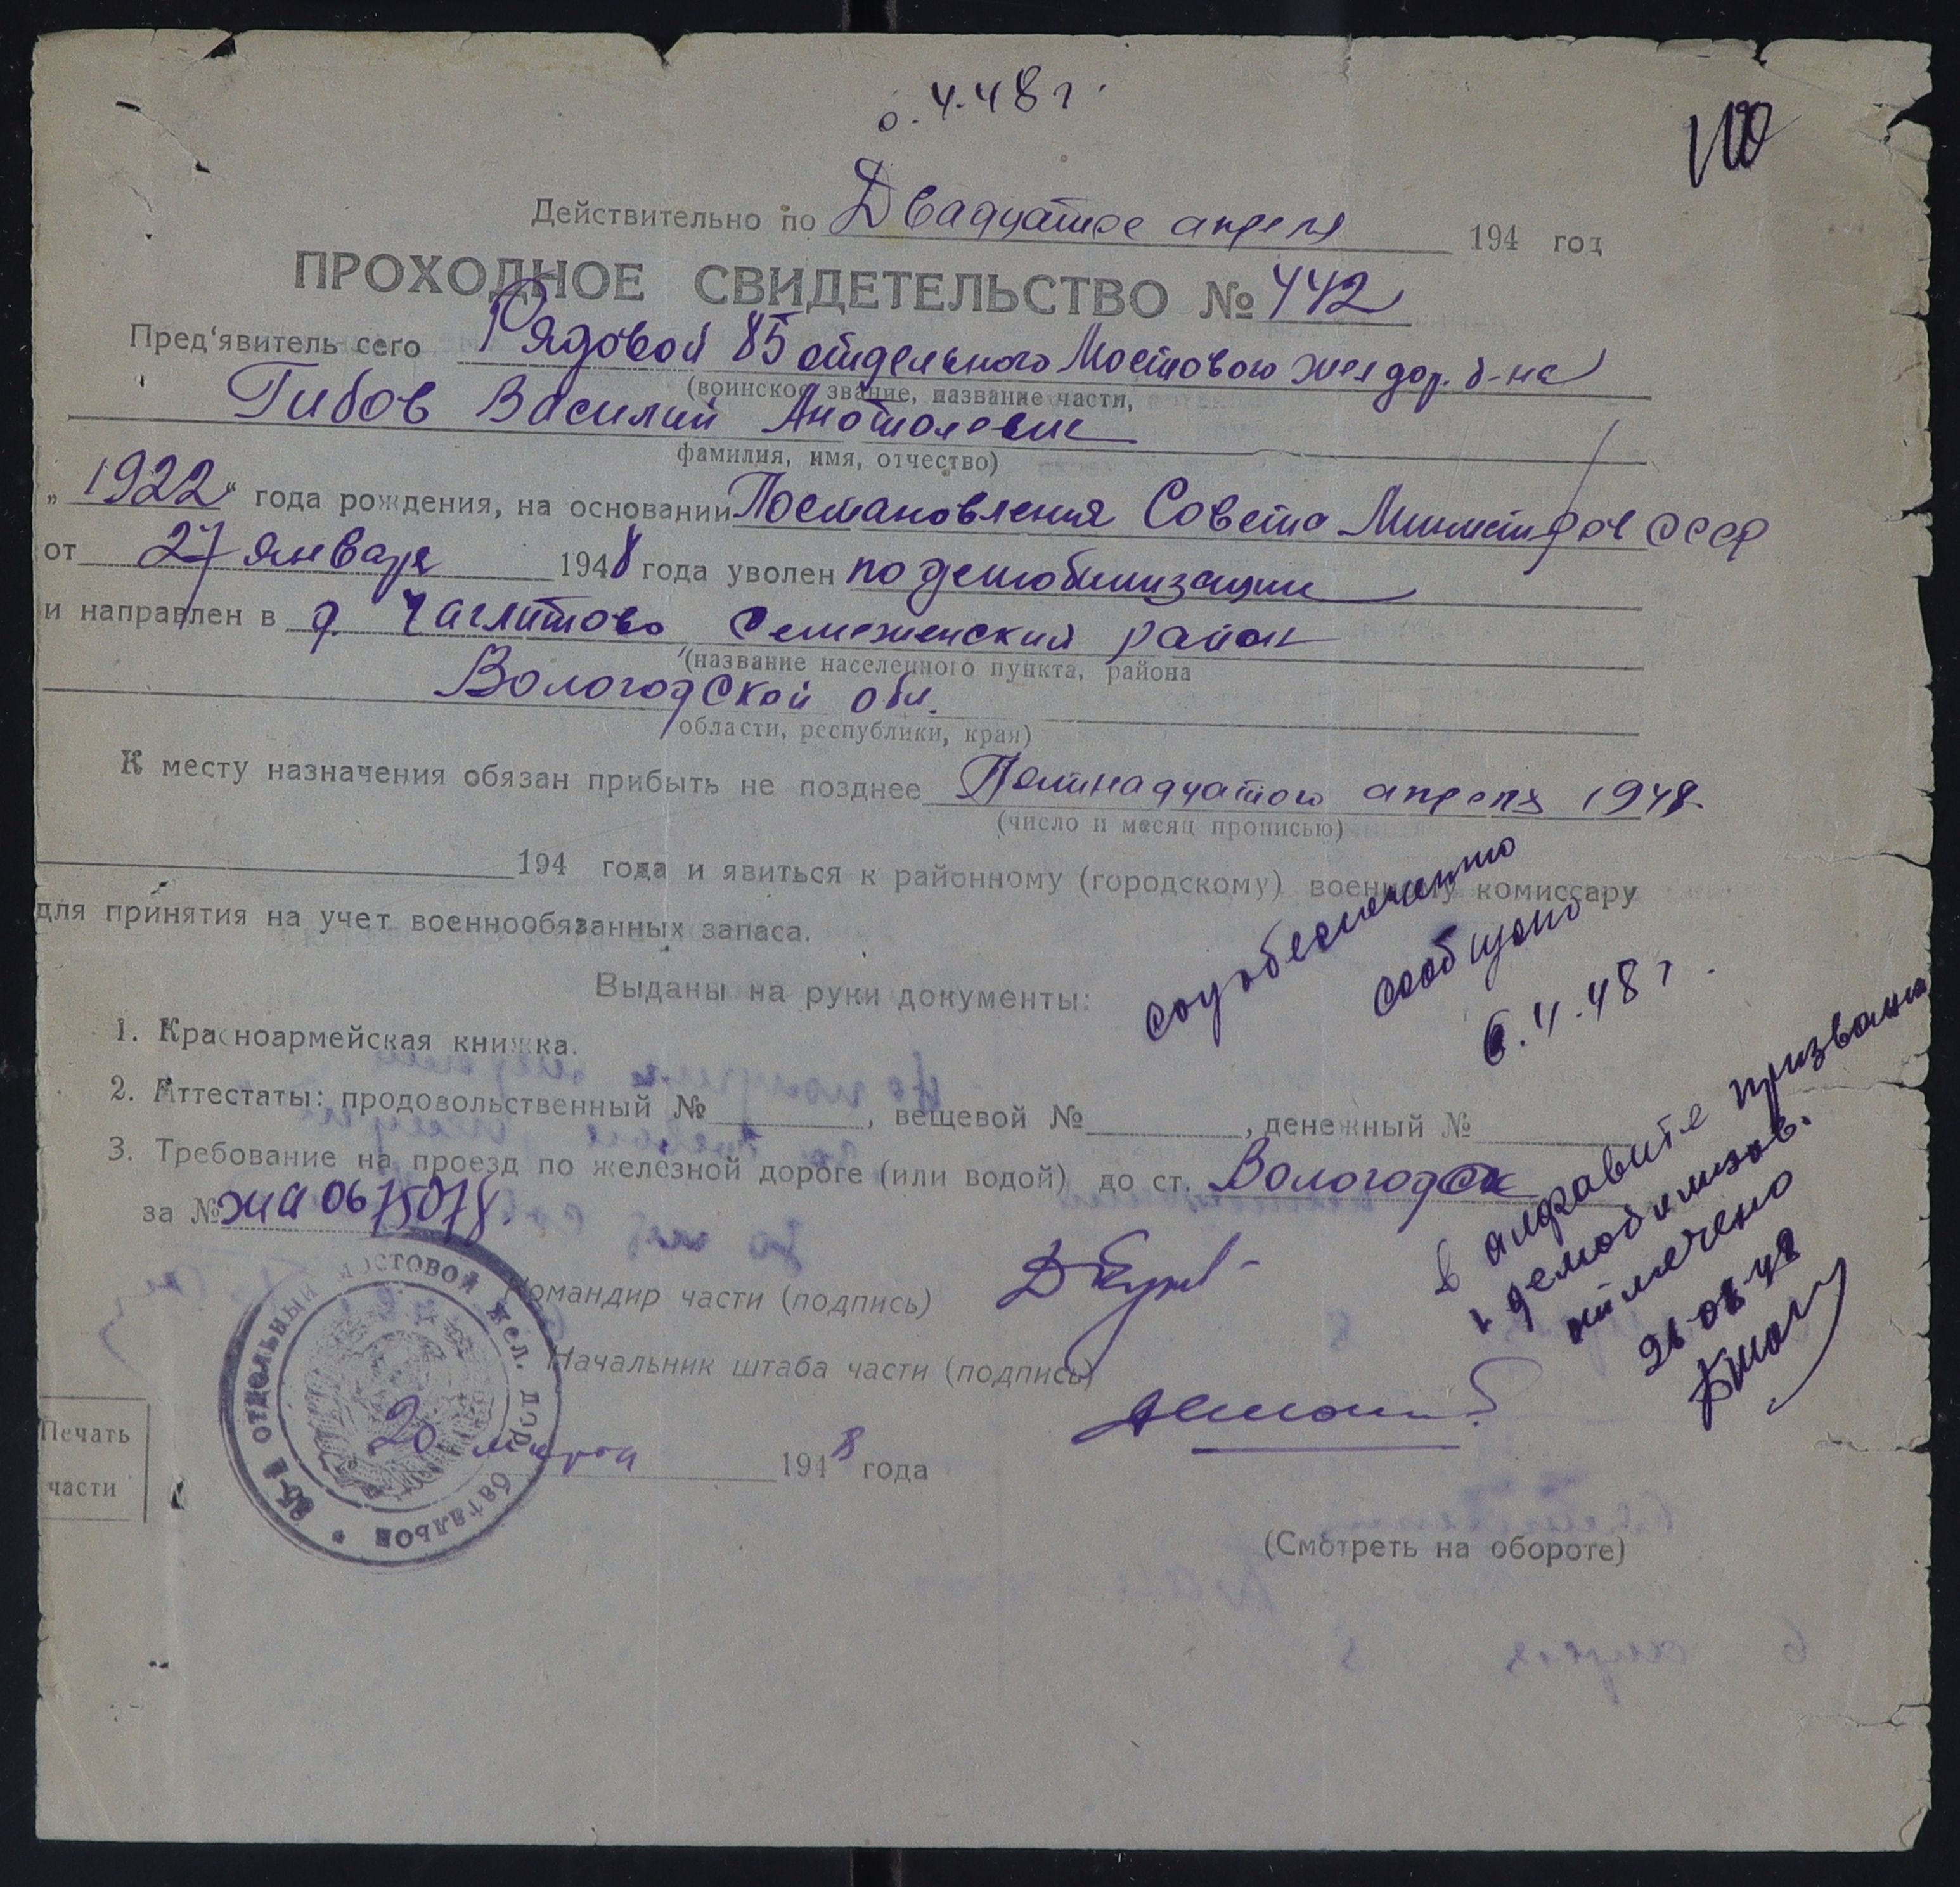 6.4.48 г.
100
Действительно по Двадцатое апреля 194 год
ПРОХОДНОЕ СВИДЕТЕЛЬСТВО № 442
Пред'явитель сего Рядовой 85 отдельного Мостового жел дор. б-на
(воинское звание, название части,
Гибов Василий Анатолевич
фамилия, имя, отчество)
„1922" года рождения, на основании Постановления Совета Министров СССР
от 27 января 1948 года уволен по демобилизации
и направлен в д. Чаглотово Семеженский район
(название населенного пункта, района
Вологодской обл.
области, республики, края)
К месту назначения обязан прибыть не позднее Пятнадцатого апреля 1948
(число и месяц прописью)
194 года и явиться к районному (городскому) военному комиссару
для принятия на учет военнообязанных запаса.
Выданы на руки документы:
1. Красноармейская книжка.
2. Аттестаты: продовольственный № , вещевой № , денежный №
3. Требование на проезд по железной дороге (или водой) до ст. Вологодск
за № ЖА 0675078.
Командир части (подпись)
Начальник штаба части (подпись)
85-й ОТДЕЛЬНЫЙ МОСТОВОЙ ЖЕЛ. ДОР. БАТАЛЬОН
Печать
части
20 марта 1948 года
(Смотреть на обороте)
соцобеспечению
сообщено
6.4.48 г.
в алфавите призванн
и демобилизов.
отмечено
26 08 48